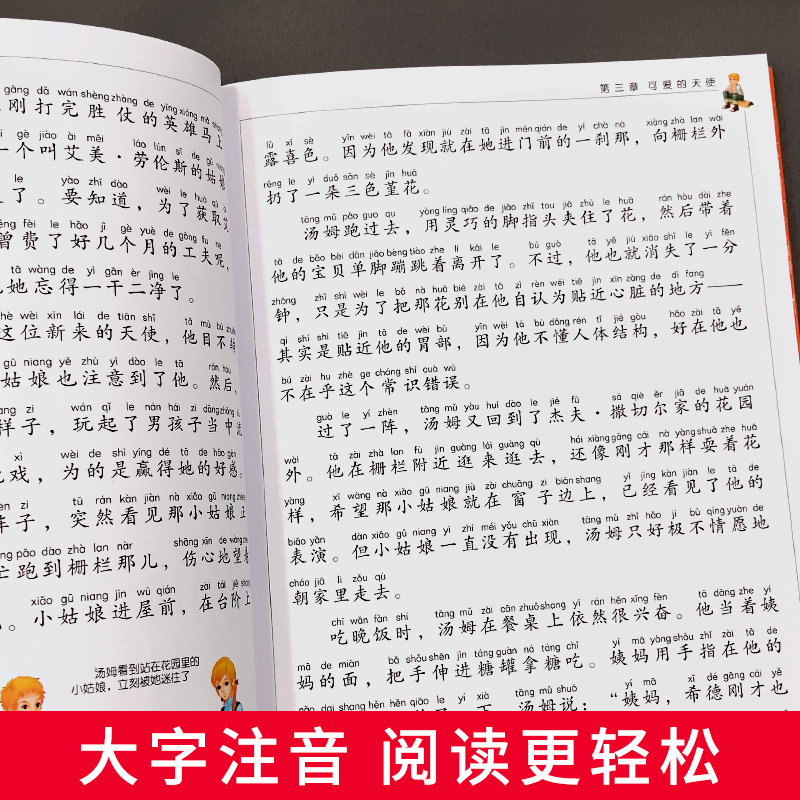 gāng dǎ wán shèng zhàng de yīng xióng mǎ shàng
刚打完胜仗的英雄马上
gè jiào ài měi láo lún sī de gū
一个叫艾美·劳伦斯的姑娘
yào zhī dào wèi le huò qǔ
了。要知道，为了获取艾
fèi le hǎo jǐ gè yuè de gōng fu ne
曾费了好几个月的工夫呢，
tā wàng de yì gān èr jìng le
她忘得一干二净了。
zhè wèi xīn lái de tiān shǐ tā mù bù zhuǎn
这位新来的天使，他目不转
gū niang yě zhù yì dào le tā rán hòu
姑娘也注意到了他。然后，
yàng zi wán qǐ le nán hái zi dāng zhōng liú
样子，玩起了男孩子当中流
xì wèi de shì yíng dé tā de hǎo gǎn
戏，为的是赢得她的好感。
zi tū rán kàn jiàn nà xiǎo gū niang zhèng
子，突然看见那小姑娘正
máng pǎo dào zhà lan nàr shāng xīn de wàng zhe
忙跑到栅栏那儿，伤心地望着
xiǎo gū niang jìn wū qián zài tái jiē shang
。小姑娘进屋前，在台阶上
汤姆看到站在花园里的
小姑娘，立刻被她迷住了
第三章 可爱的天使
lù xǐ sè yīn wèi tā fā xiàn jiù zài tā jìn mén qián de yí chà nà xiàng zhà lan wài
露喜色。因为他发现就在她进门前的一刹那，向栅栏外
rēng le yì duǒ sān sè jǐn huā
扔了一朵三色堇花。
tāng mǔ pǎo guo qu yòng líng qiǎo de jiǎo zhǐ tou jiā zhù le huā rán hòu dài zhe
汤姆跑过去，用灵巧的脚指头夹住了花，然后带着
tā de bǎo bèi dān jiǎo bèng tiào zhe lí kāi le bú guò tā yě jiù xiāo shī le yì fēn
他的宝贝单脚蹦跳着离开了。不过，他也就消失了一分
zhōng zhǐ shì wèi le bǎ nà huā bié zài tā zì rèn wéi tiē jìn xīn zàng de dì fang
钟，只是为了把那花别在他自认为贴近心脏的地方——
qí shí shì tiē jìn tā de wèi bù yīn wèi tā bù dǒng rén tǐ jié gòu hǎo zài tā yě
其实是贴近他的胃部，因为他不懂人体结构，好在他也
bú zài hu zhè ge cháng shí cuò wù
不在乎这个常识错误。
guò le yí zhèn tāng mǔ yòu huí dào le jié fū sā qiè ěr jiā de huā yuán
过了一阵，汤姆又回到了杰夫·撒切尔家的花园
wài tā zài zhà lan fù jìn guàng lái guàng qù hái xiàng gāng cái nà yàng shuǎ zhe huā
外。他在栅栏附近逛来逛去，还像刚才那样耍着花
yàng xī wàng nà xiǎo gū niang jiù zài chuāng zi biān shang yǐ jīng kàn jiàn le tā de
样，希望那小姑娘就在窗子边上，已经看见了他的
biǎo yǎn dàn xiǎo gū niang yì zhí méi yǒu chū xiàn tāng mǔ zhǐ hǎo jí bù qíng yuàn de
表演。但小姑娘一直没有出现，汤姆只好极不情愿地
cháo jiā li zǒu qù
朝家里走去。
chī wǎn fàn shí tāng mǔ zài cān zhuō shang yī rán hěn xīng fèn tā dāng zhe yí
吃晚饭时，汤姆在餐桌上依然很兴奋。他当着姨
mā de miàn bǎ shǒu shēn jìn táng guàn ná táng chī yí mā yòng shǒu zhǐ zài tā de
妈的面，把手伸进糖罐拿糖吃。姨妈用手指在他的
nǎo dai shang hēn hēn qiāo le yí xià tāng mǔ shuō yí mā xī dé gāng cái yě
汤姆说：“姨妈，希德刚才也
大字注音 阅读更轻松